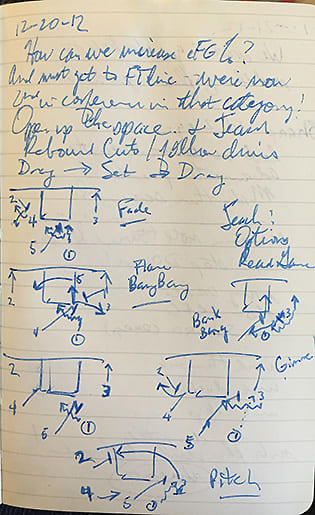 12-20-12
How can we increase eFG%?
And must get to FT line - were now
2nd in conference in that category!
Open up the space & Teach
Rebound Cuts /
Drag → Set → Drag
2 4 3 5 1 Fade
Teach:
Options
Read Game
2 5 4 3 1 Flare
BangBang
Bank
Bang
4 3 5 1
2 4 5 3 1 Gimme
2 4 5 1
Pitch